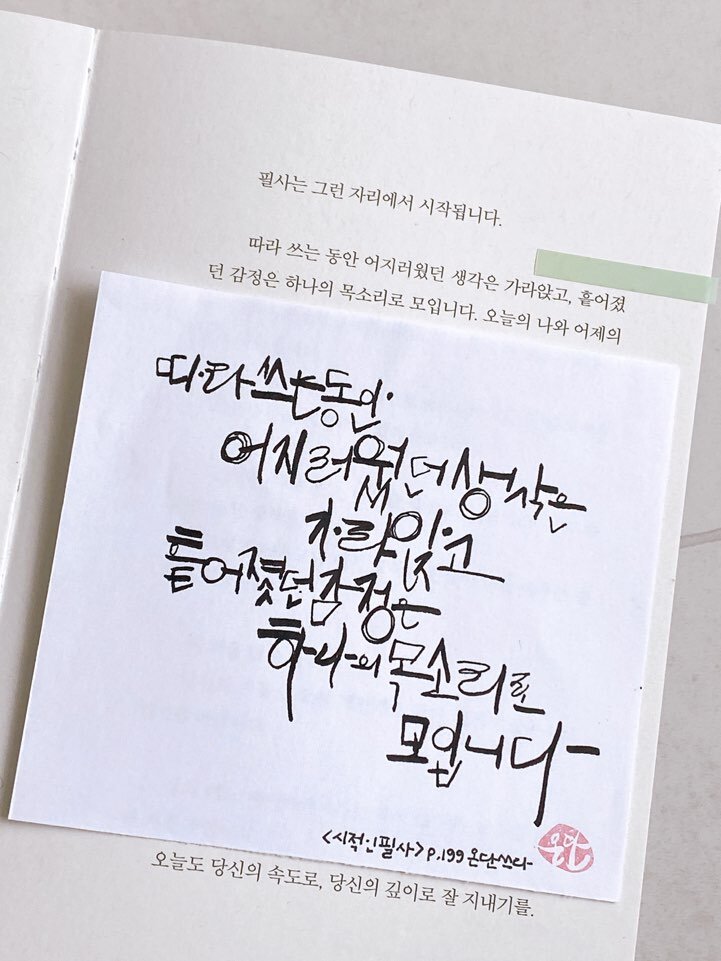 필사는 그런 자리에서 시작됩니다.
따라 쓰는 동안 어지러웠던 생각은 가라앉고, 흩어졌
던 감정은 하나의 목소리로 모입니다. 오늘의 나와 어제의
따라 쓰는 동안
어지러웠던 생각은
가라앉고
흩어졌던 감정은
하나의 목소리로
모입니다
<시적인필사> p.199 온단쓰다
온단
오늘도 당신의 속도로, 당신의 깊이로 잘 지내기를.